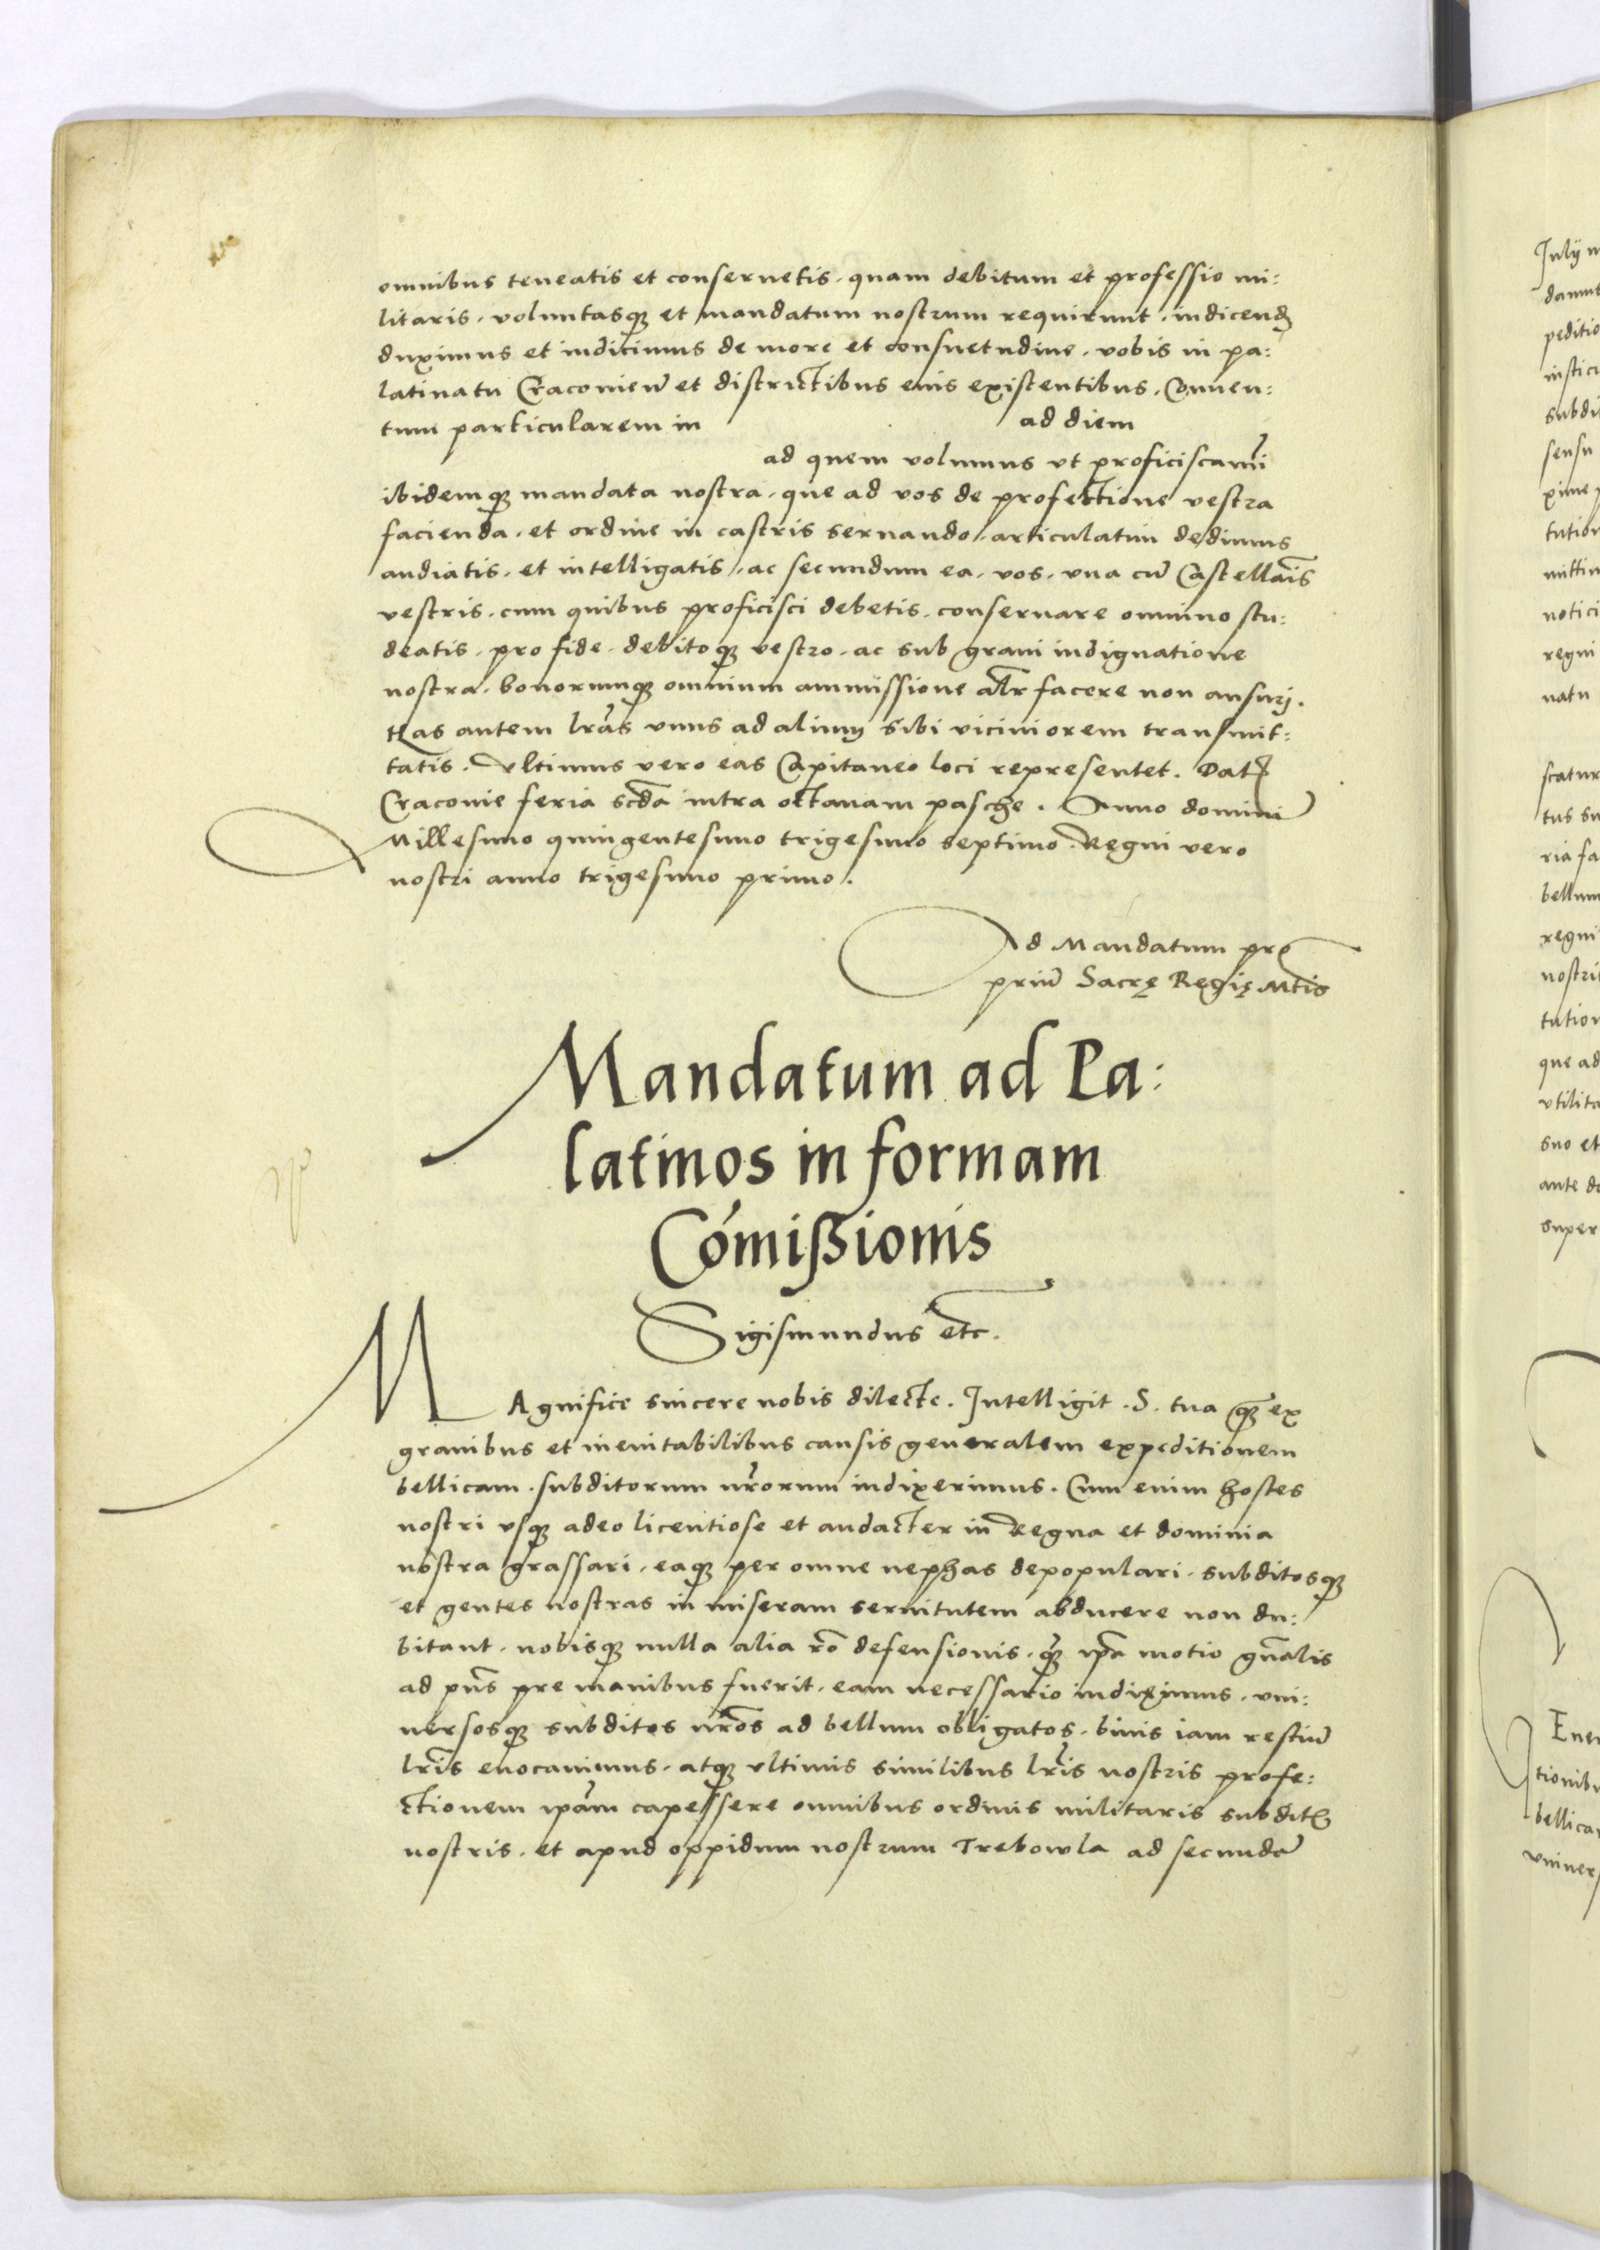 omnibus teneatis et conseruetis, quam debitum et professio mi:
litaris, voluntasq; et mandatum nostrum requirunt, indicend
duximus et indicimus de more et consuetudine, vobis in pa:
latinatu Craconien̄ et districtibus eius existentibus, Conuen:
tum particularem in ad diem
ad quem volumus vt proficiscamī
ibidemq; mandata nostra, que ad vos de profectione vestra
facienda, et ordine in castris seruando, articulatim dedimus
audiatis, et intelligatis, ac secundum ea, vos, vna cū Castellāis
vestris, cum quibus proficisci debetis, conseruare omnino stu:
deatis, pro fide, debitoq; vestro, ac sub graui indignatione
nostra, bonorumq; omnium ammissione alr̄ facere non ausuri.
Has autem lrās vnus ad alium sibi viciniorem transmit:
tatis. Vltimus vero eas Capitaneo loci representet. Dat
Craconie feria scd̄a intra octauam pasche. Anno domini
Millesimo quingentesimo trigesimo septimo. Regni vero
nostri anno trigesimo primo.
Ad Mandatum pro
priū Sacrę Regię Mtis
Mandatum ad Pa:
latinos in formam
Cómißionis
Sigismundus etc.
MAgnifice sincere nobis dilecte. Intelligit .S. tua q; ex
grauibus et ineuitabilibus causis generalem expeditionem
bellicam, subditorum nr̄orum indixerimus. Cum enim hostes
nostri vsq; adeo licentiose et audacter in Regna et dominia
nostra grassari, eaq; per omne nephas depopulari, subditosq;
et gentes nostras in miseram seruitutem abducere non du:
bitant, nobisq; nulla alia rō defensionis, q; ip̄a motio gn̄alis
ad pn̄s pre manibus fuerit, eam necessario indiximus, vni:
uersosq; subditos nr̄os ad bellum obligatos, binis iam restiū
lr̄is euocauimus, atq; vltimis similibus lr̄is nostris profe:
ctionem ip̄am capessere omnibus ordinis militaris subdit
nostris, et apud oppidum nostrum Trebowla ad secundā